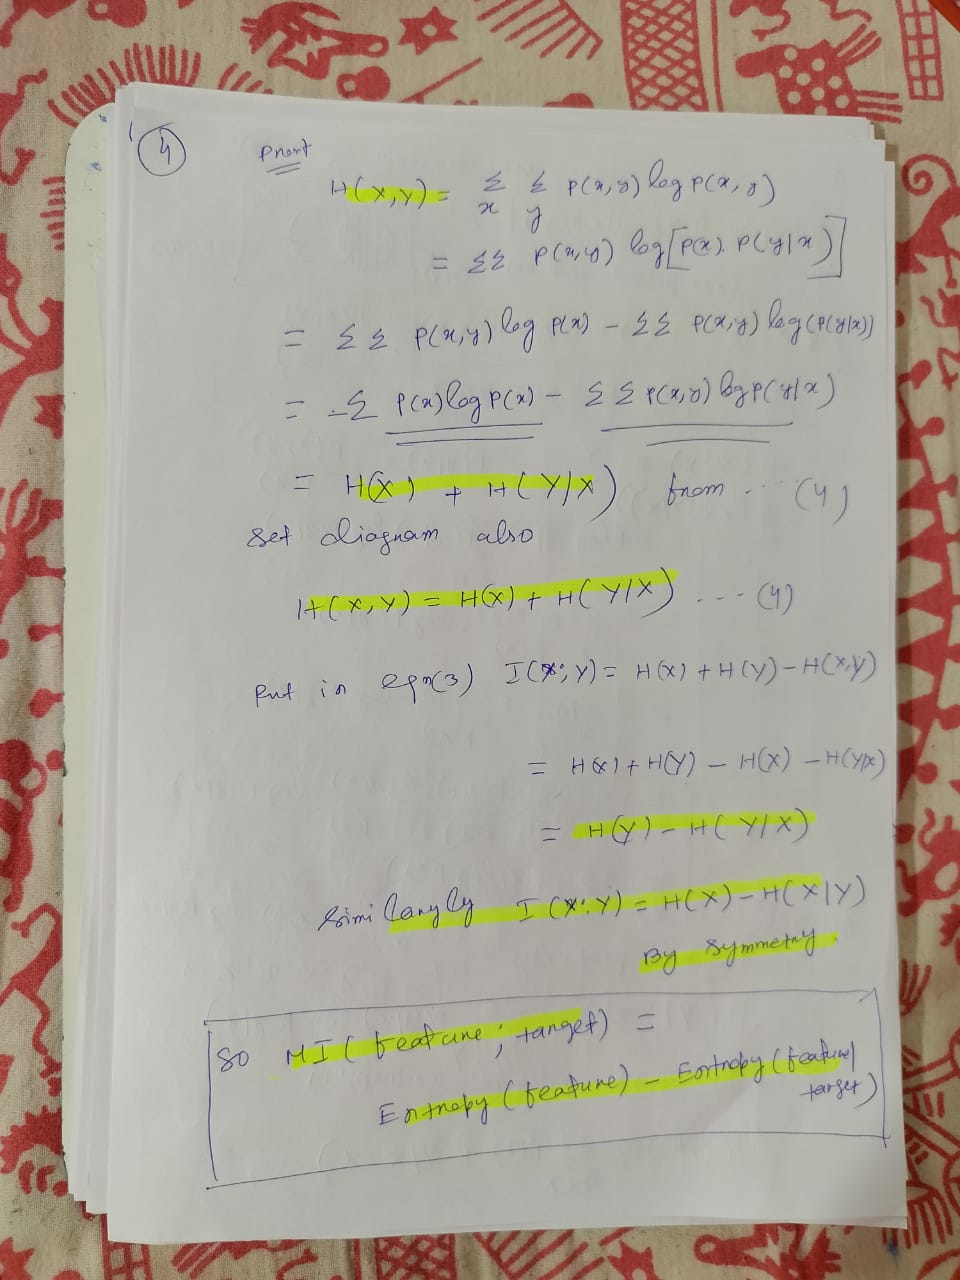 4
Proof
H(X,Y) = Σ Σ P(x,y) log P(x,y)
x y
= ΣΣ P(x,y) log[P(x). P(y|x)]
= Σ Σ P(x,y) log P(x) - ΣΣ P(x,y) log(P(y|x))
= -Σ P(x) log P(x) - Σ Σ P(x,y) log P(y|x)
= H(X) + H(Y/X) from ... (4)
set diagram also
H(X,Y) = H(X) + H(Y/X) .--- (4)
Put in eqn(3) I(X;Y) = H(X) + H(Y) - H(X,Y)
= H(X) + H(Y) - H(X) - H(Y/X)
= H(Y) - H(Y/X)
Similarly I(X;Y) = H(X) - H(X|Y)
By symmetry.
So MI (feature; target) =
Entropy (feature) - Entropy (feature|
target)